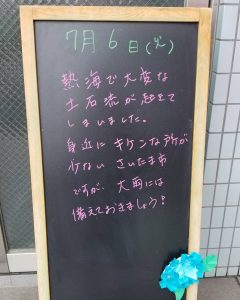 7月6日(火)
熱海で大変な
土石流が起きて
しまいました。
身近にキケンな所が
少ない さいたま市
ですが、大雨には
備えておきましょう!